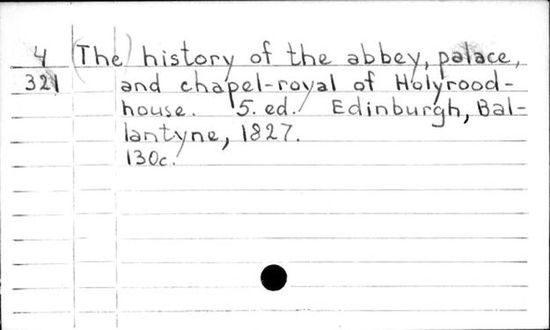 4 (The) history of the abbey, palace,
321 and chapel-royal of Holyrood-
house. 5. ed. Edinburgh, Bal-
lantyne, 1827.
130c.